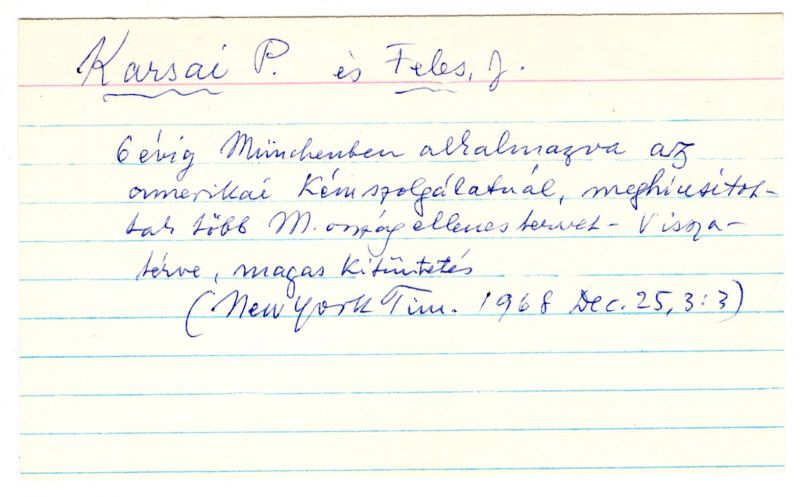 Karsai P. és Feles, J.
6 évig Münchenben alkalmazva az
amerikai Kémszolgálatnál, meghiusitot-
tak több M.ország ellenes tervet - Vissza-
térve, magas kitüntetés
(New York Tim. 1968 Dec. 25, 3:3)